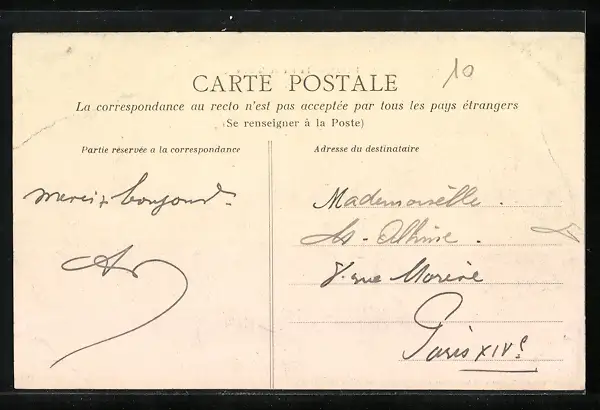 10
CARTE POSTALE
La correspondance au recto n'est pas acceptée par tous les pays étrangers
(Se renseigner à la Poste)
Partie réservée a la correspondance
Adresse du destinataire
merci & bonjour
Mademoiselle
rue
Paris XIVe